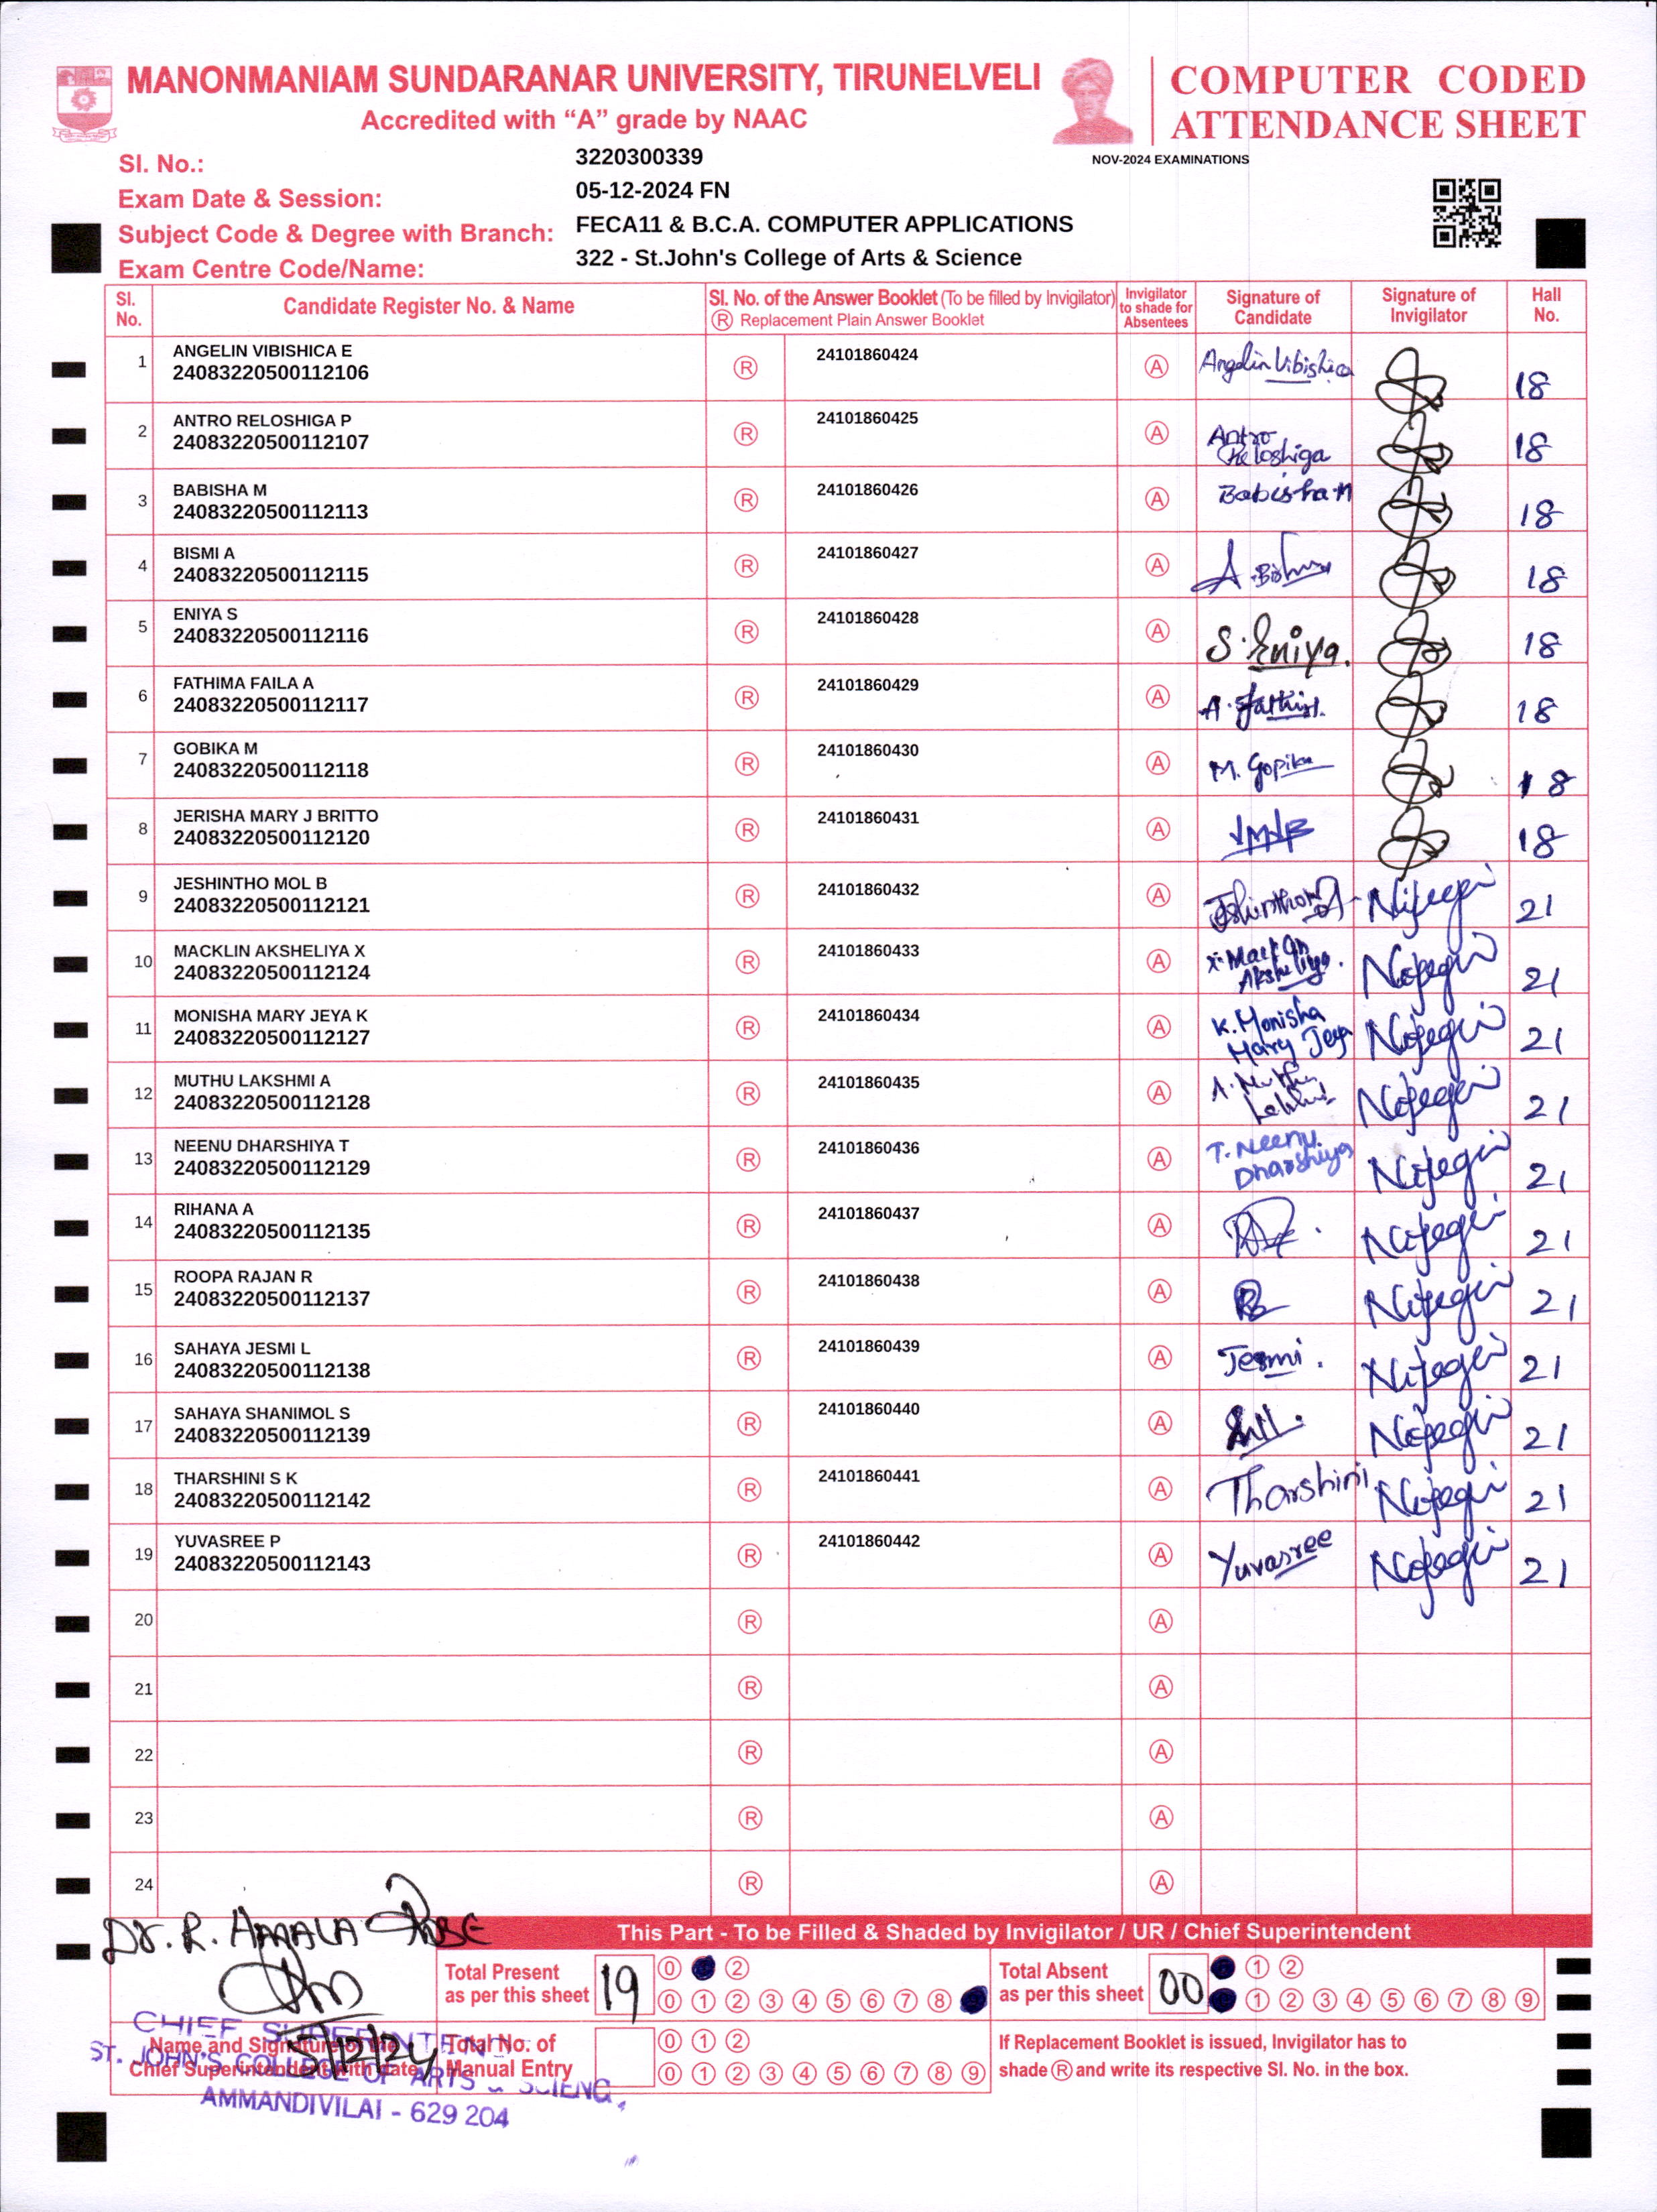 MANONMANIAM SUNDARANAR UNIVERSITY, TIRUNELVELI
Accredited with “A” grade by NAAC
COMPUTER CODED
ATTENDANCE SHEET
NOV-2024 EXAMINATIONS
Sl. No.: 3220300339
Exam Date & Session: 05-12-2024 FN
Subject Code & Degree with Branch: FECA11 & B.C.A. COMPUTER APPLICATIONS
Exam Centre Code/Name: 322 - St.John's College of Arts & Science
Sl. No. Candidate Register No. & Name Sl. No. of the Answer Booklet (To be filled by Invigilator) Ⓡ Replacement Plain Answer Booklet Invigilator to shade for Absentees Signature of Candidate Signature of Invigilator Hall No.
1 ANGELIN VIBISHICA E Ⓡ 24101860424 Ⓐ Angelin Vibishica 18
24083220500112106
2 ANTRO RELOSHIGA P Ⓡ 24101860425 Ⓐ Antro Reloshiga 18
24083220500112107
3 BABISHA M Ⓡ 24101860426 Ⓐ Babisha M 18
24083220500112113
4 BISMI A Ⓡ 24101860427 Ⓐ 18
24083220500112115
5 ENIYA S Ⓡ 24101860428 Ⓐ S. Eniya. 18
24083220500112116
6 FATHIMA FAILA A Ⓡ 24101860429 Ⓐ 18
24083220500112117
7 GOBIKA M Ⓡ 24101860430 Ⓐ M. Gopika 18
24083220500112118
8 JERISHA MARY J BRITTO Ⓡ 24101860431 Ⓐ JMJB 18
24083220500112120
9 JESHINTHO MOL B Ⓡ 24101860432 Ⓐ 21
24083220500112121
10 MACKLIN AKSHELIYA X Ⓡ 24101860433 Ⓐ X. Macklin Aksheliya. 21
24083220500112124
11 MONISHA MARY JEYA K Ⓡ 24101860434 Ⓐ K. Monisha Mary Jeya 21
24083220500112127
12 MUTHU LAKSHMI A Ⓡ 24101860435 Ⓐ A. Muthu 21
24083220500112128
13 NEENU DHARSHIYA T Ⓡ 24101860436 Ⓐ T. Neenu Dharshiya 21
24083220500112129
14 RIHANA A Ⓡ 24101860437 Ⓐ 21
24083220500112135
15 ROOPA RAJAN R Ⓡ 24101860438 Ⓐ 21
24083220500112137
16 SAHAYA JESMI L Ⓡ 24101860439 Ⓐ Jesmi. 21
24083220500112138
17 SAHAYA SHANIMOL S Ⓡ 24101860440 Ⓐ 21
24083220500112139
18 THARSHINI S K Ⓡ 24101860441 Ⓐ Tharshini 21
24083220500112142
19 YUVASREE P Ⓡ 24101860442 Ⓐ Yuvasree 21
24083220500112143
20 Ⓡ Ⓐ
21 Ⓡ Ⓐ
22 Ⓡ Ⓐ
23 Ⓡ Ⓐ
24 Ⓡ Ⓐ
Dr. R. AMALA
This Part - To be Filled & Shaded by Invigilator / UR / Chief Superintendent
Total Present as per this sheet 19 0 2
0 1 2 3 4 5 6 7 8
Total Absent as per this sheet 00 1 2
1 2 3 4 5 6 7 8 9
CHIEF SUPERINTEN
5/12/24
Name and Signature of the
Chief Superintendent with Date
ST. JOHN'S COLLEGE OF ARTS & SCIENC
AMMANDIVILAI - 629 204
Total No. of Manual Entry 0 1 2
0 1 2 3 4 5 6 7 8 9
If Replacement Booklet is issued, Invigilator has to
shade Ⓡ and write its respective Sl. No. in the box.